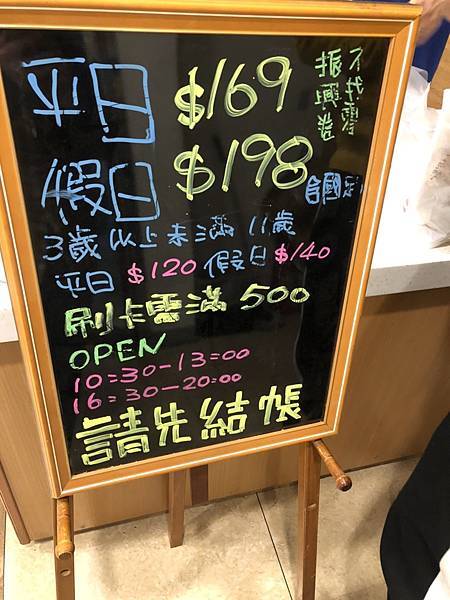 平日 $169
假日 $198
3歲以上未滿 11歲
平日 $120 假日 $140
刷卡需滿 500
OPEN
10:30-13:00
16:30-20:00
請先結帳
不找零
振興券
國旅